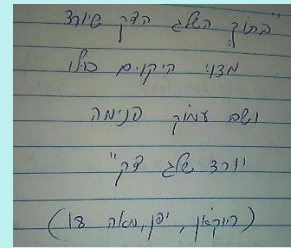 "בתוך השלג הדק שיורד
מצוי היקום כולו
ושם עמוק פנימה
יורד שלג דק"
(ריוקאן, יפן, מאה 18)